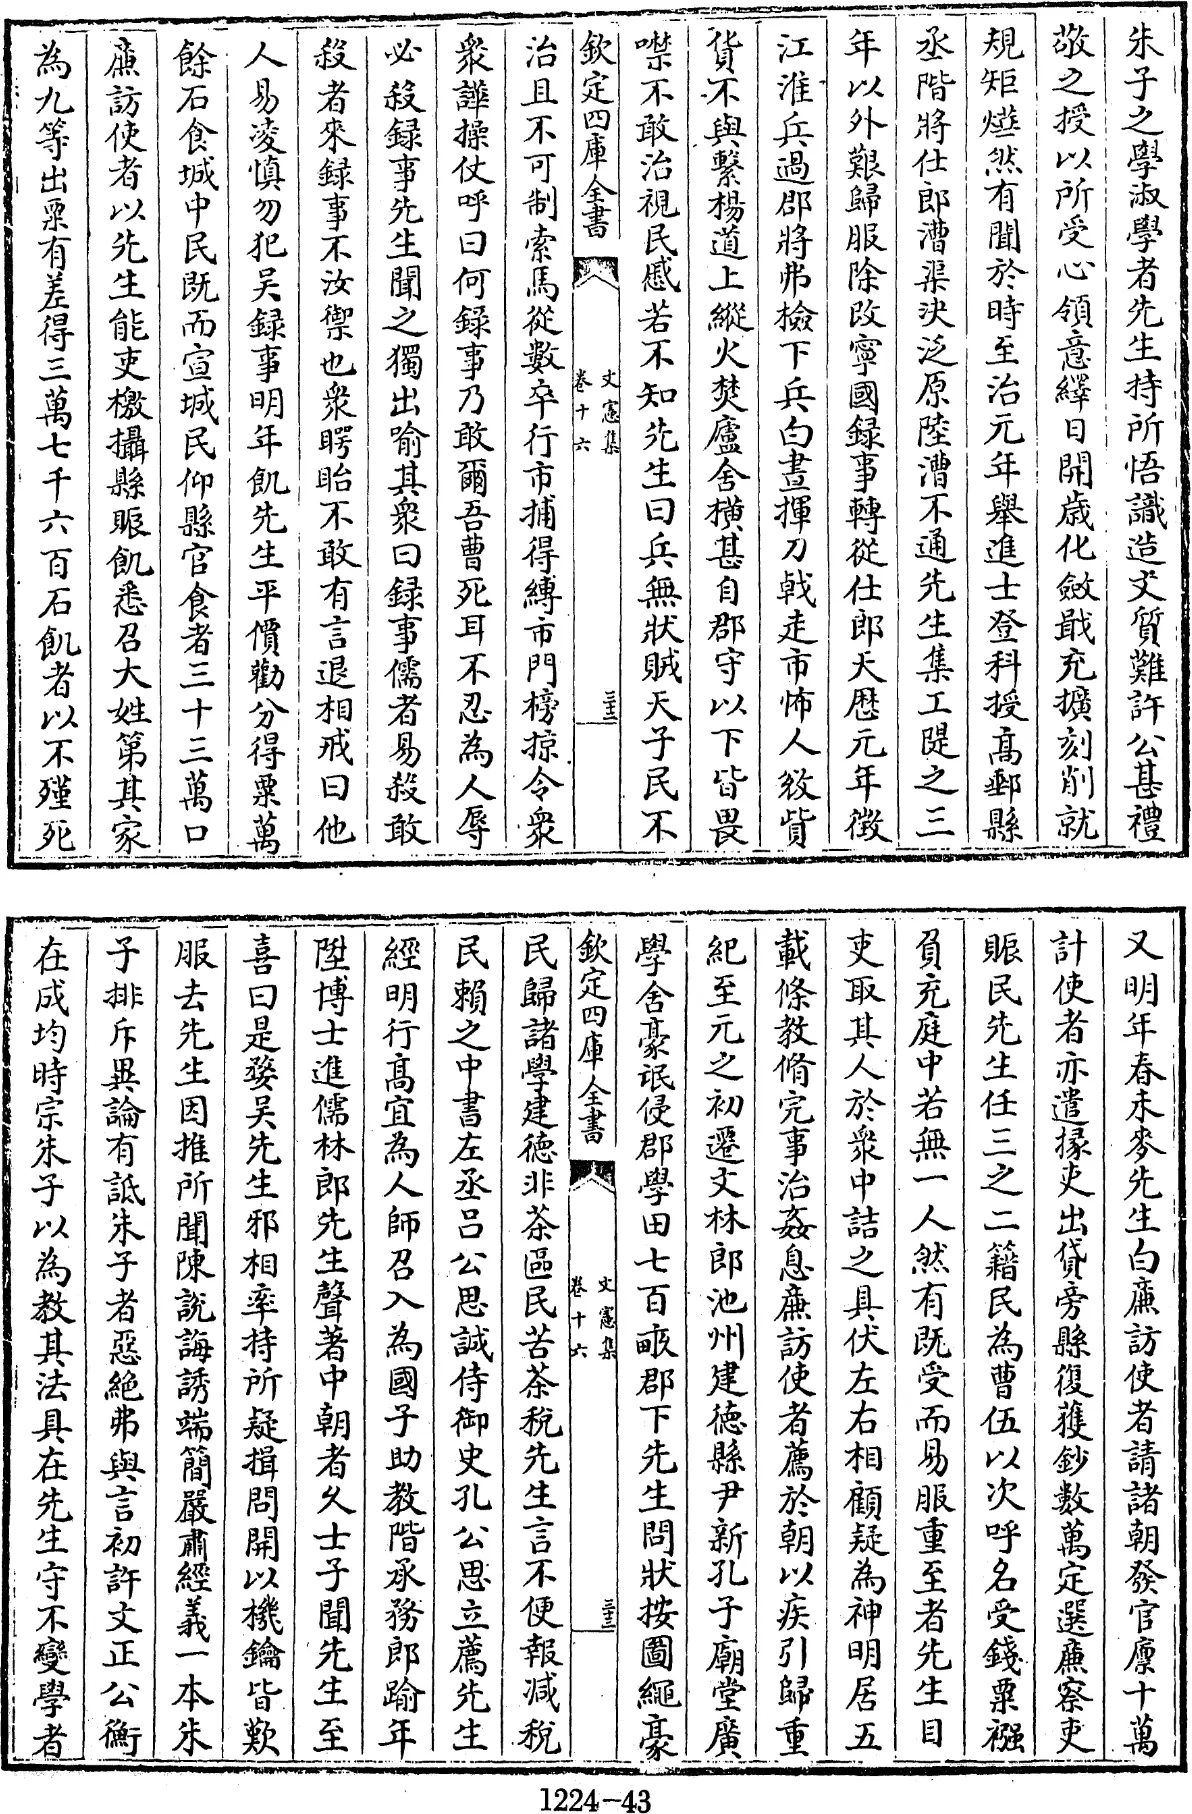 朱子之學淑學者先生持所悟識造文質難許公甚禮
敬之授以所受心領意繹日開歲化斂戢充擴刻削就
規矩燁然有聞於時至治元年舉進士登科授髙郵縣
丞階將仕郎漕渠決泛原陸漕不通先生集工隄之三
年以外艱歸服除改寧國録事轉從仕郎天厯元年徴
江淮兵過郡將弗檢下兵白晝揮刀戟走市怖人敓貲
貨不與繫楊道上縱火焚廬舍横甚自郡守以下皆畏
噤不敢治視民慼若不知先生曰兵無狀賊天子民不
欽定四庫全書
文憲集
卷十六
三十三
治且不可制索馬從數卒行市捕得縛市門榜掠令衆
衆譁操仗呼曰何録事乃敢爾吾曹死耳不忍為人辱
必殺録事先生聞之獨出喻其衆曰録事儒者易殺敢
殺者來録事不汝禦也衆睅眙不敢有言退相戒曰他
人易凌慎勿犯吴録事明年飢先生平價勸分得粟萬
餘石食城中民既而宣城民仰縣官食者三十三萬口
廉訪使者以先生能吏檄攝縣賑飢悉召大姓第其家
為九等出粟有差得三萬七千六百石飢者以不殣死
又明年春未麥先生白廉訪使者請諸朝發官廪十萬
計使者亦遣掾吏出貸旁縣復獲鈔數萬定選廉察吏
賑民先生任三之二籍民為曹伍以次呼名受錢粟襁
負充庭中若無一人然有既受而易服重至者先生目
吏取其人於衆中詰之具伏左右相顧疑為神明居五
載條教脩完事治姦息廉訪使者薦於朝以疾引歸重
紀至元之初遷文林郎池州建徳縣尹新孔子廟堂廣
學舍豪氓侵郡學田七百畝郡下先生問狀按圖繩豪
欽定四庫全書
文憲集
卷十六
三十三
民歸諸學建徳非茶區民苦茶稅先生言不便報减稅
民賴之中書左丞吕公思誠侍御史孔公思立薦先生
經明行髙宜為人師召入為國子助教階承務郎踰年
陞博士進儒林郎先生聲著中朝者久士子聞先生至
喜曰是婺吴先生邪相率持所疑揖問開以機鑰皆歎
服去先生因推所聞陳說誨誘端簡嚴肅經義一本朱
子排斥異論有詆朱子者惡絶弗與言初許文正公衡
在成均時宗朱子以為教其法具在先生守不變學者
1224-43